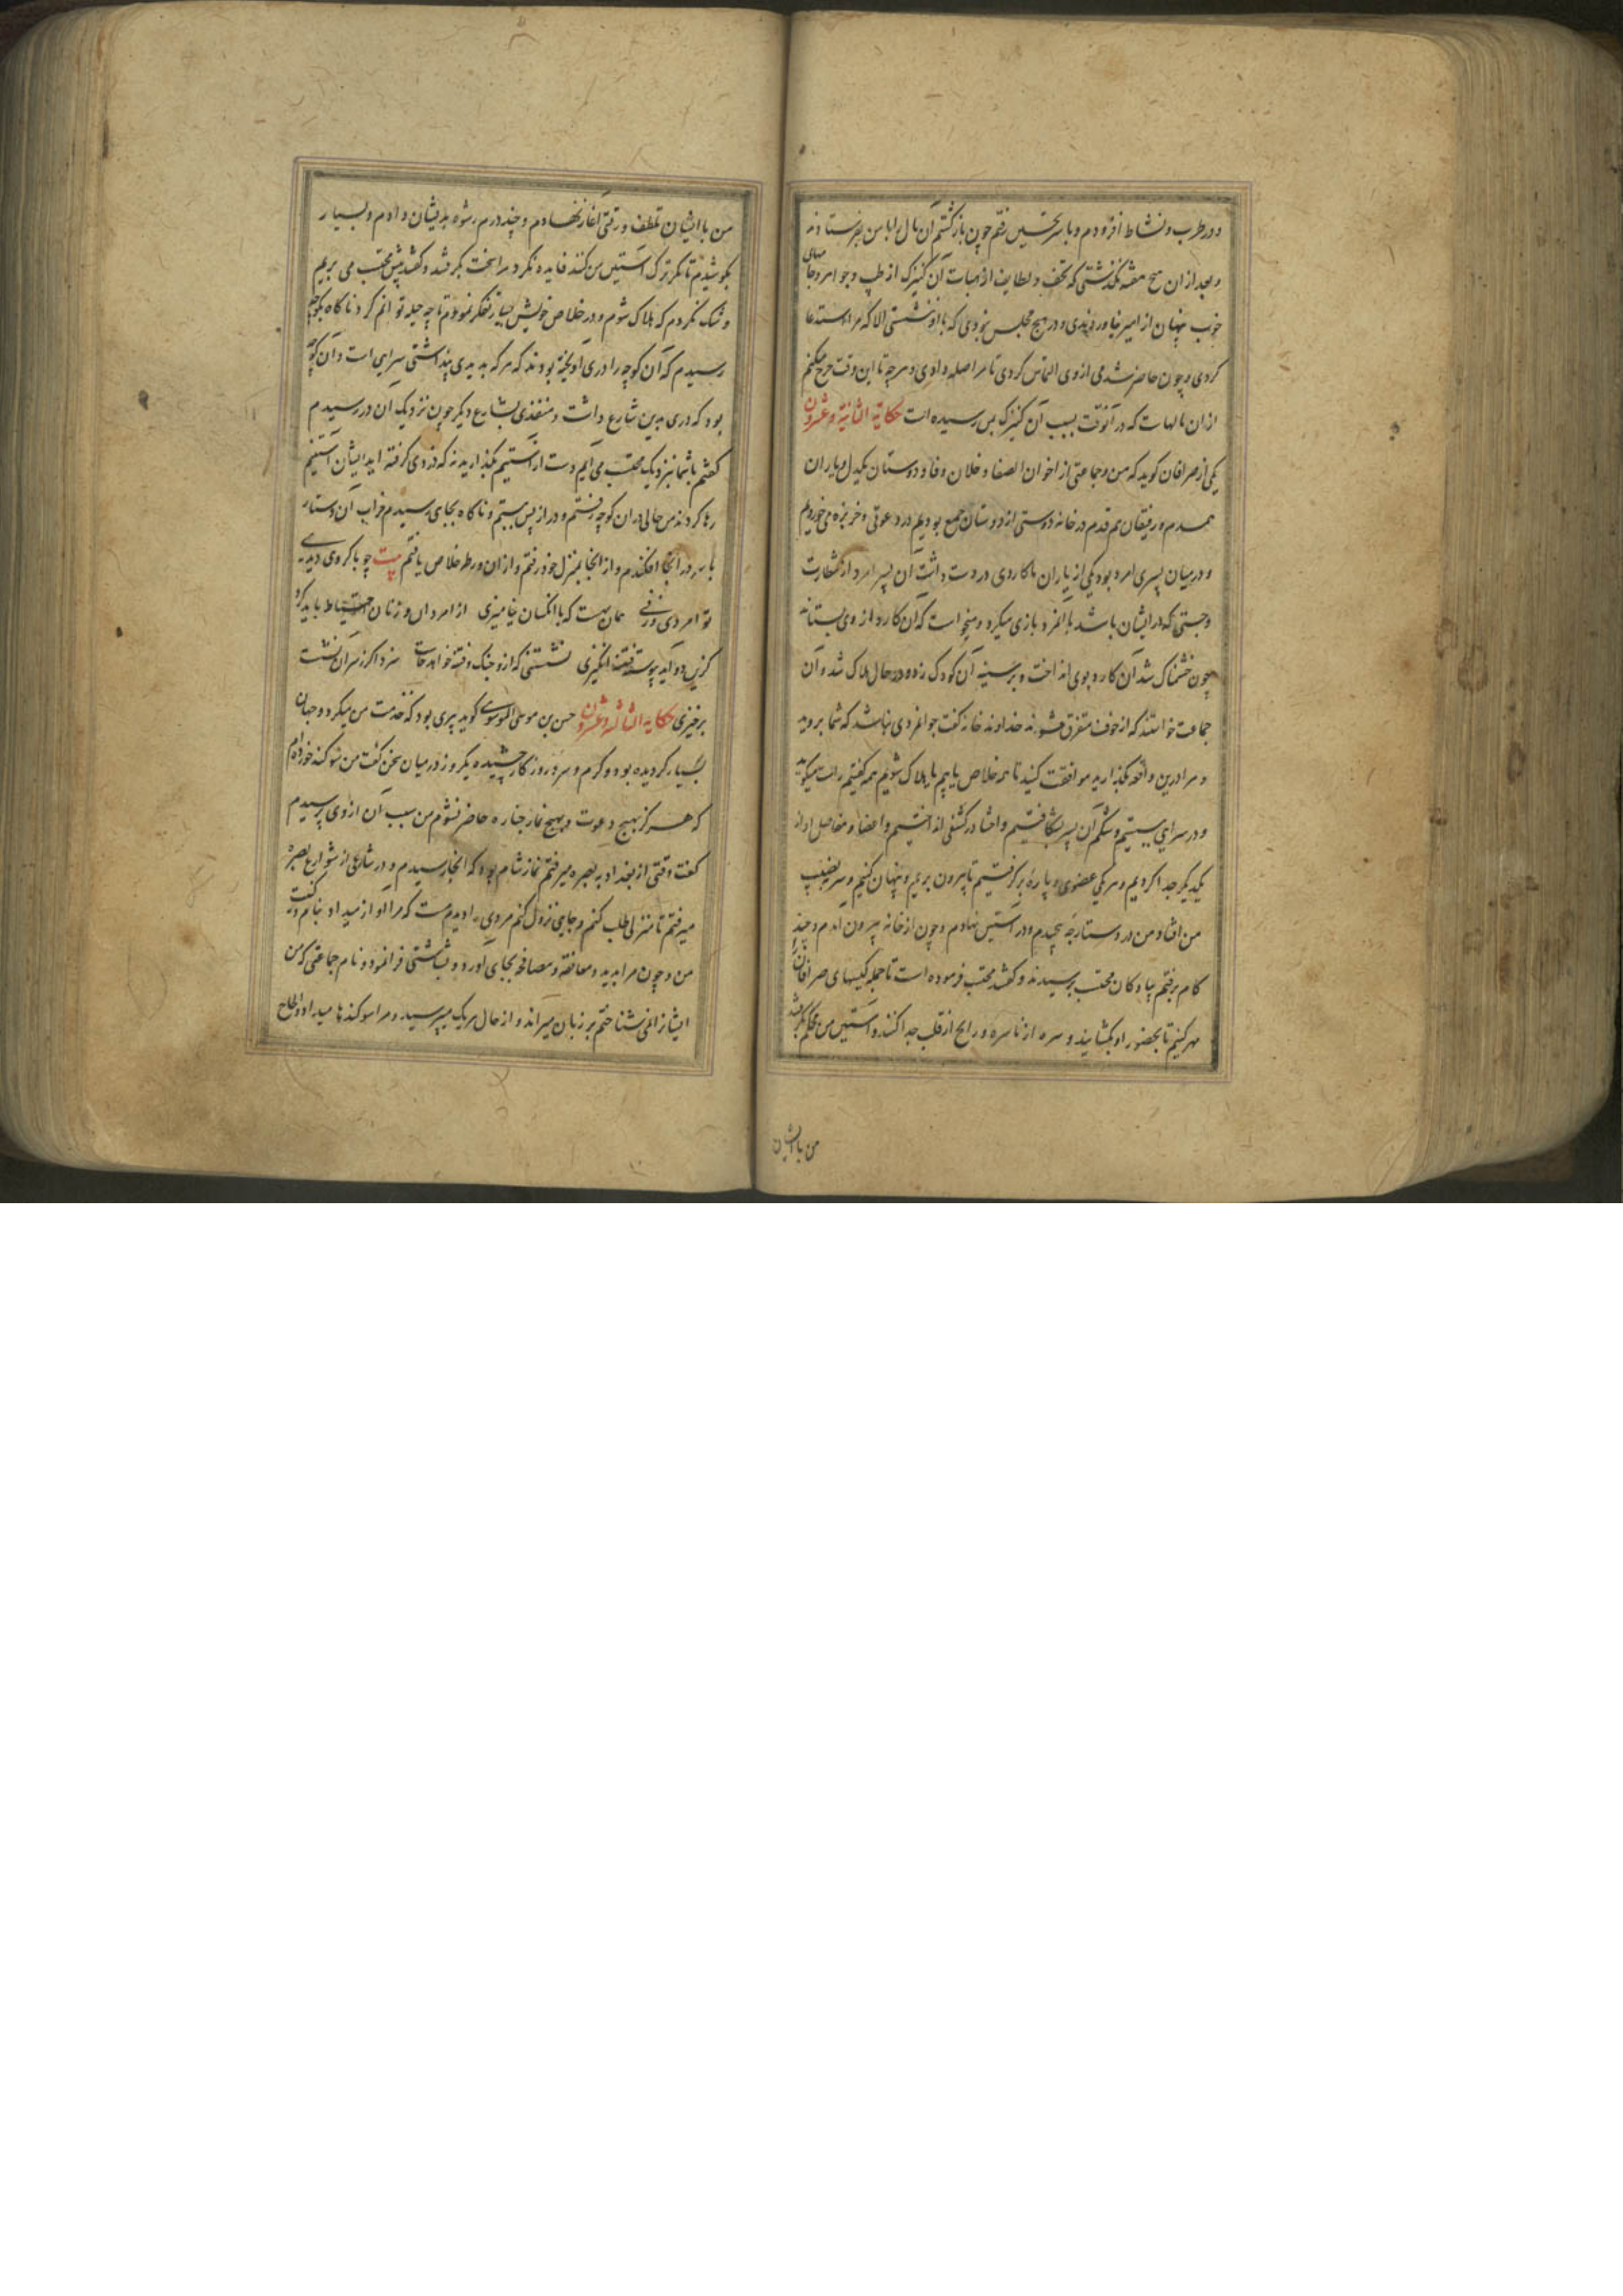 و در طرب و نشاط افزودم و با سر تحسین رفتم چون بازگشتم آن مال را با من بفرستادند
و بعد از آن هیچ هفته نگذشتی که تحف و لطایف از امیات آن کنیزک از طیب و جواهر و جامهای
خوب پنهان از امیر نیاوردندی و در هیچ مجلس نبودی که با او ننشستی الا که مرا استدعا
کردی و چون حاضر شدمی از وی التماس کردی تا مرا صله دادی و هرچه تا این وقت خرج میکنم
از آن مالهاست که در آنوقت بسبب آن کنیزک بمن رسیده است حکایة الثانیة و عشرون
یکی از صرافان گوید که من و جماعتی از اخوان الصفا و خلان وفا و دوستان یکدل و یاران
همدم و رفیقان هم قدم در خانه دوستی از دوستان جمع بودیم در دعوتی و خربزه می خوردیم
و در میان پسری امرد بود یکی از یاران ما کاردی در دست داشت آن پسر امرد از شطارت
و چستی که در ایشان باشد با آنمرد بازی میکرد و میخواست که آن کارد از وی بستاند
چون خشمناک شد آن کارد بوی انداخت و بر سینه آن کودک زد و در حال هلاک شد و آن
جماعت خواستند که از خوف متفرق شوند خداوند خانه گفت جوانمردی نباشد که شما بروید
و مرا درین واقعه بگذارید موافقت کنید تا همه خلاص یابیم یا هلاک شویم همه گفتیم راست میگوید
و در سرای ببستیم و شکم آن پسر بشکافتیم و احشا در کنفی انداختیم و اعضا و مفاصل او از
یکدیگر جدا کردیم و هر یکی عضوی و پاره برگرفتیم تا بیرون بریم و پنهان کنیم و سر بنصیب
من افتاد من در دستارچه پیچیدم و در آستین نهادم و چون از خانه بیرون آمدم و چند
گام برفتم پیادگان محتسب برسیدند و گفتند محتسب فرموده است تا جمله کیسهای صرافان
مهر کنیم تا بحضور او بگشایند و سره از ناسره و رایج از قلب جدا کنند و آستین من محکم بگرفتند
من با ایشان
من با ایشان تلطف و رقتی آغاز نهادم و چند درم رشوه بدیشان دادم و بسیار
بکوشیدم تا مگر ترک آستین من کنند فایده نکرد مرا سخت بگرفتند و گفتند پیش محتسب می بریم
و شک نکردم که هلاک شوم و در خلاص خویش بسیار تفکر نمودم تا چه حیله توانم کرد ناگاه بکوچه
رسیدم که آن کوچه را دری آویخته بودند که هر که بدیدی پنداشتی سرایی است و آن کوچه
بود که دری بدین شارع داشت و منفذی بشارع دیگر چون نزدیک آن در رسیدم
گفتم با شما نزدیک محتسب می آیم دست از آستینم بگذارید نه که دزدی گرفته اید ایشان آستینم
رها کردند من حالی در آن کوچه رفتم و در از پس ببستم و ناگاه بجای رسیدم خراب آن دستار
با سر در آنجا افکندم و از آنجا بمنزل خود رفتم و از آن ورطه خلاص یافتم بیت چو باکروی دیدی
تو امردی و زنی همان بهت که با آنکسان نیامیزی از امردان و زنان احتیاط باید کرد
کزین دو آید پیوسته فتنه انگیزی نشستنی که ازو جنگ و فتنه خواهد خاست سزد اگر ز سر آن نشست
برخیزی حکایه الثالثه و عشرون حسن بن موسی الموسوی گوید پیری بود که خدمت من میکرد و جهان
بسیار گردیده بود و گرم و سرد روزگار چشیده یکروز در میان سخن گفت من سوگند خورده‌ام
که هرگز بهیچ دعوت و بهیچ نماز جنازه حاضر نشوم من سبب آن از وی پرسیدم
گفت وقتی از بغداد به بصره میرفتم نماز شام بود که آنجا رسیدم و در شارعی از شوارع بصره
میرفتم تا منزلی طلب کنم و جایی نزول کنم مردی را دیدم مست که مرا آواز میداد بنام و کنیت
من و چون مرا بدید و معانقه و مصافحه بجای آورد و بشاشتی فرا نمود و نام جماعتی که من
ایشانرا نمی شناختم بر زبان میراند و از حال هر یک میپرسید و مرا سوگندها میداد و الحاح